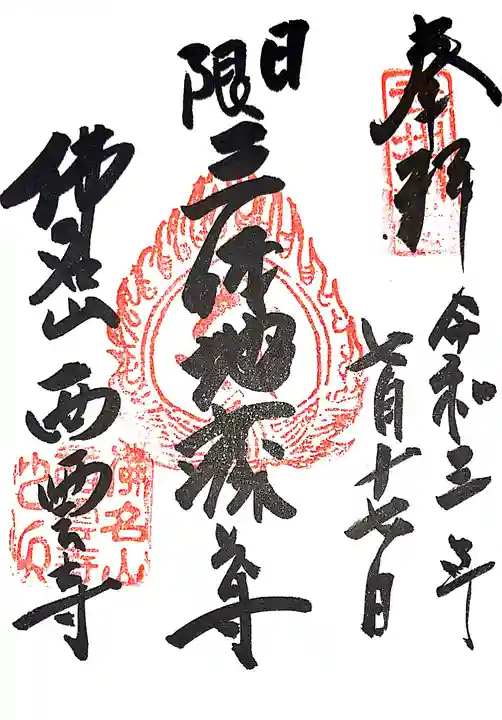 奉拝
令和三年
七月十七日
日限三体地蔵尊
佛名山 西雲寺
佛名山